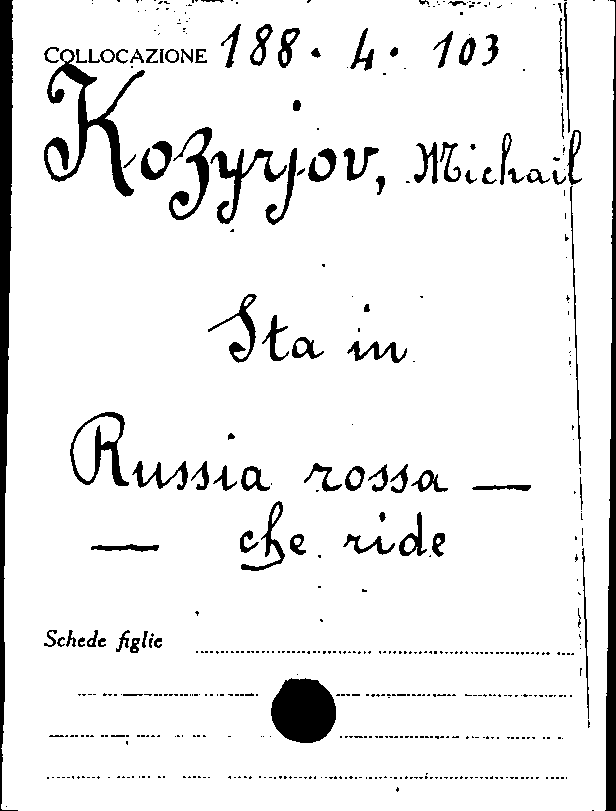 COLLOCAZIONE 188. 4. 103
Kozyrjov, Michail
Sta in
Russia rossa —
— che ride
Schede figlie